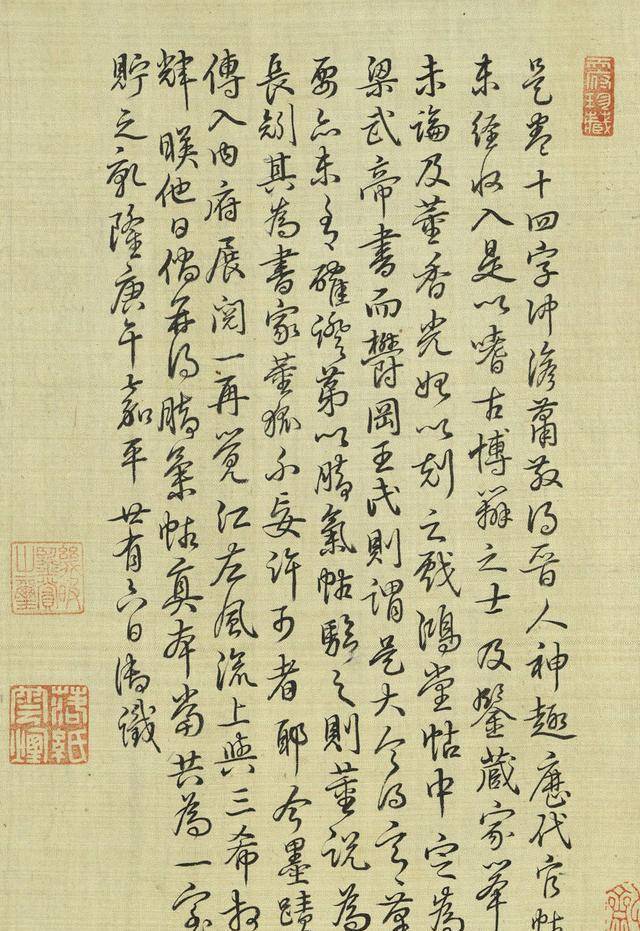 是卷十四字沖澹蕭散得晉人神趣歷代官帖
未經收入是以嗜古博辯之士及鑒藏家
未論及董香光始以刻之戲鴻堂帖中定為
梁武帝書而欎岡王氏則謂是大令得意筆
要亦未有確證第以腳氣帖驗之則董說為
長矧其為書家董狐不妄許可者耶今墨蹟
傳入內府展閱一再覺江左風流上與三希相
輝暎他日倘再得腳氣帖真本當共為一室
貯之乾隆庚午嘉平廿有六日御識
落紙雲煙